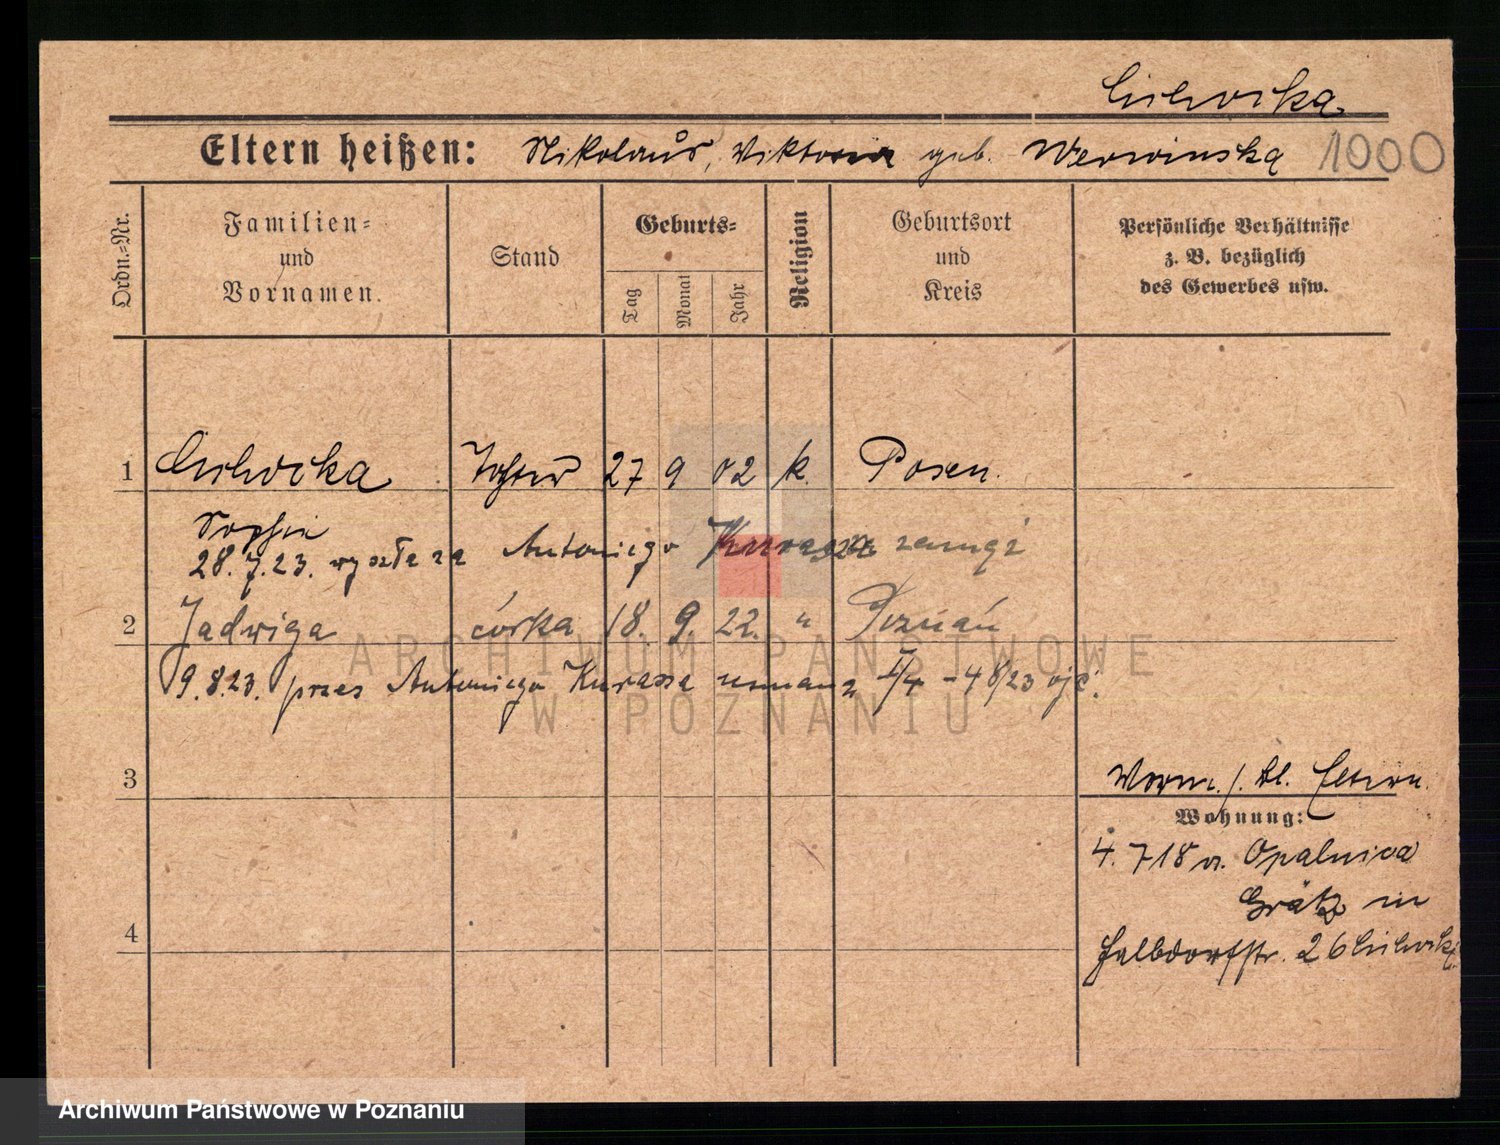 Cichocka
Eltern heißen: Nikolaus, Viktoria geb. Werwinska 1000
Ordn.-Nr.
Familien-
und
Vornamen.
Stand
Geburts-
Tag
Monat
Jahr
Religion
Geburtsort
und
Kreis
Persönliche Verhältnisse
z. B. bezüglich
des Gewerbes usw.
1 Cichocka Tochter 27 9 02 k. Posen.
Sophie
28.7.23. wyszła za Antoniego Kurassa zamąż
2 Jadwiga córka 18. 9. 22. " Poznań
9.8.23. przez Antoniego Kurassa uznana
3
4
Eltern
Wohnung:
4. 7 18 v. Opalnica
Grätz in
26 Cichocki
ARCHIWUM PAŃSTWOWE
W POZNANIU
Archiwum Państwowe w Poznaniu